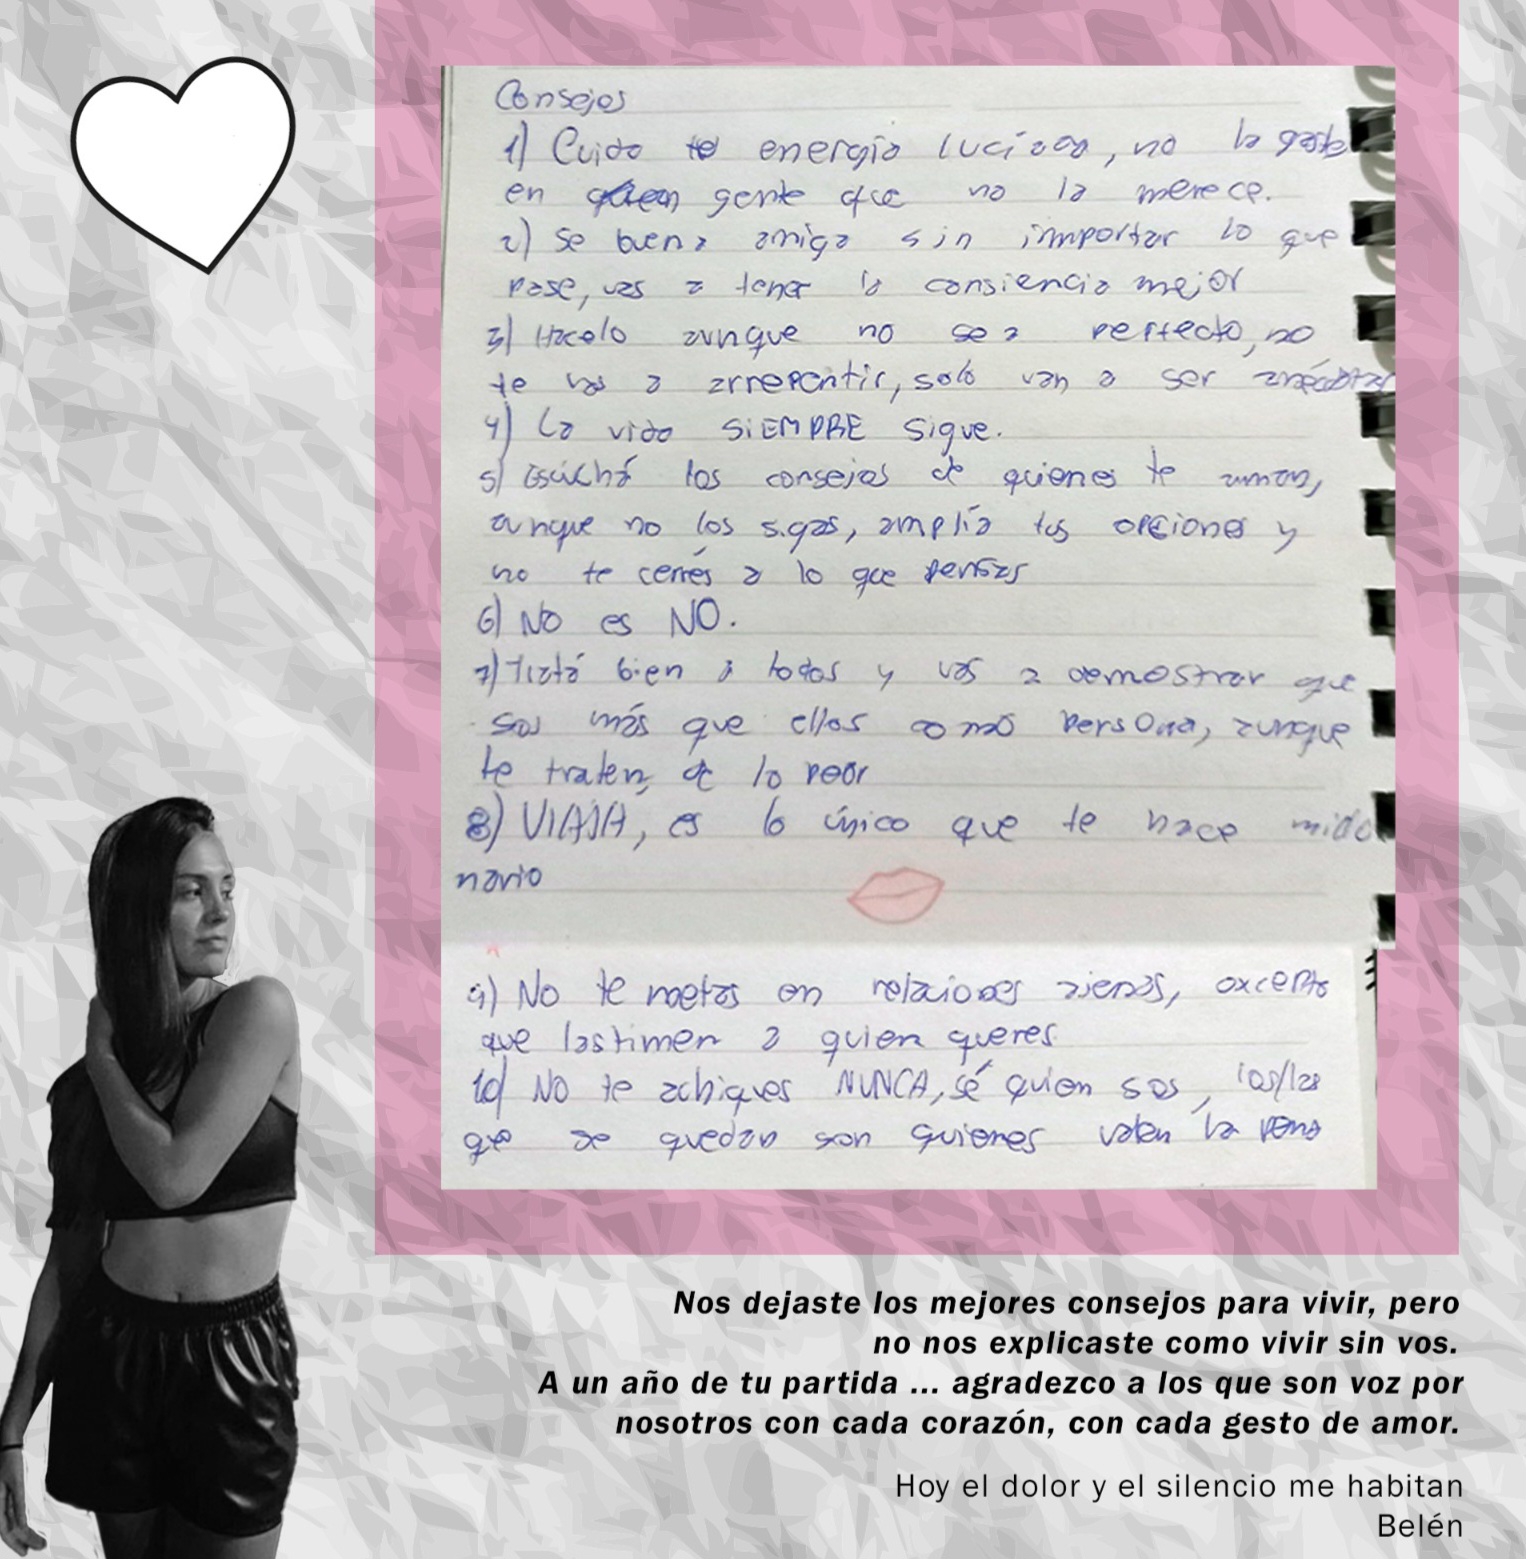 Consejos
1) Cuida tu energía lucíaaa, no la gaste
en gente que no la merece.
2) Se buena amiga sin importar lo que
pase, vas a tener la consiencia mejor
3) Hacelo aunque no sea perfecto, no
te vas a arrepentir, solo van a ser
4) La vida SiEMPRE sigue.
5) Escuchá los consejos de quienes te aman,
aunque no los sigas, amplía tus opciones y
no te cerrés a lo que pensas
6) NO es NO.
7) Tratá bien a todos y vas a demostrar que
sos más que ellos como persona, aunque
te traten de lo peor
8) VIAJA, es lo único que te hace millo
nario
9) No te metas en relaciones ajenas, excepto
que lastimen a quien queres
10) NO te achiques NUNCA, sé quien sos, los/las
que se quedan son quienes valen la pena
Nos dejaste los mejores consejos para vivir, pero
no nos explicaste como vivir sin vos.
A un año de tu partida ... agradezco a los que son voz por
nosotros con cada corazón, con cada gesto de amor.
Hoy el dolor y el silencio me habitan
Belén